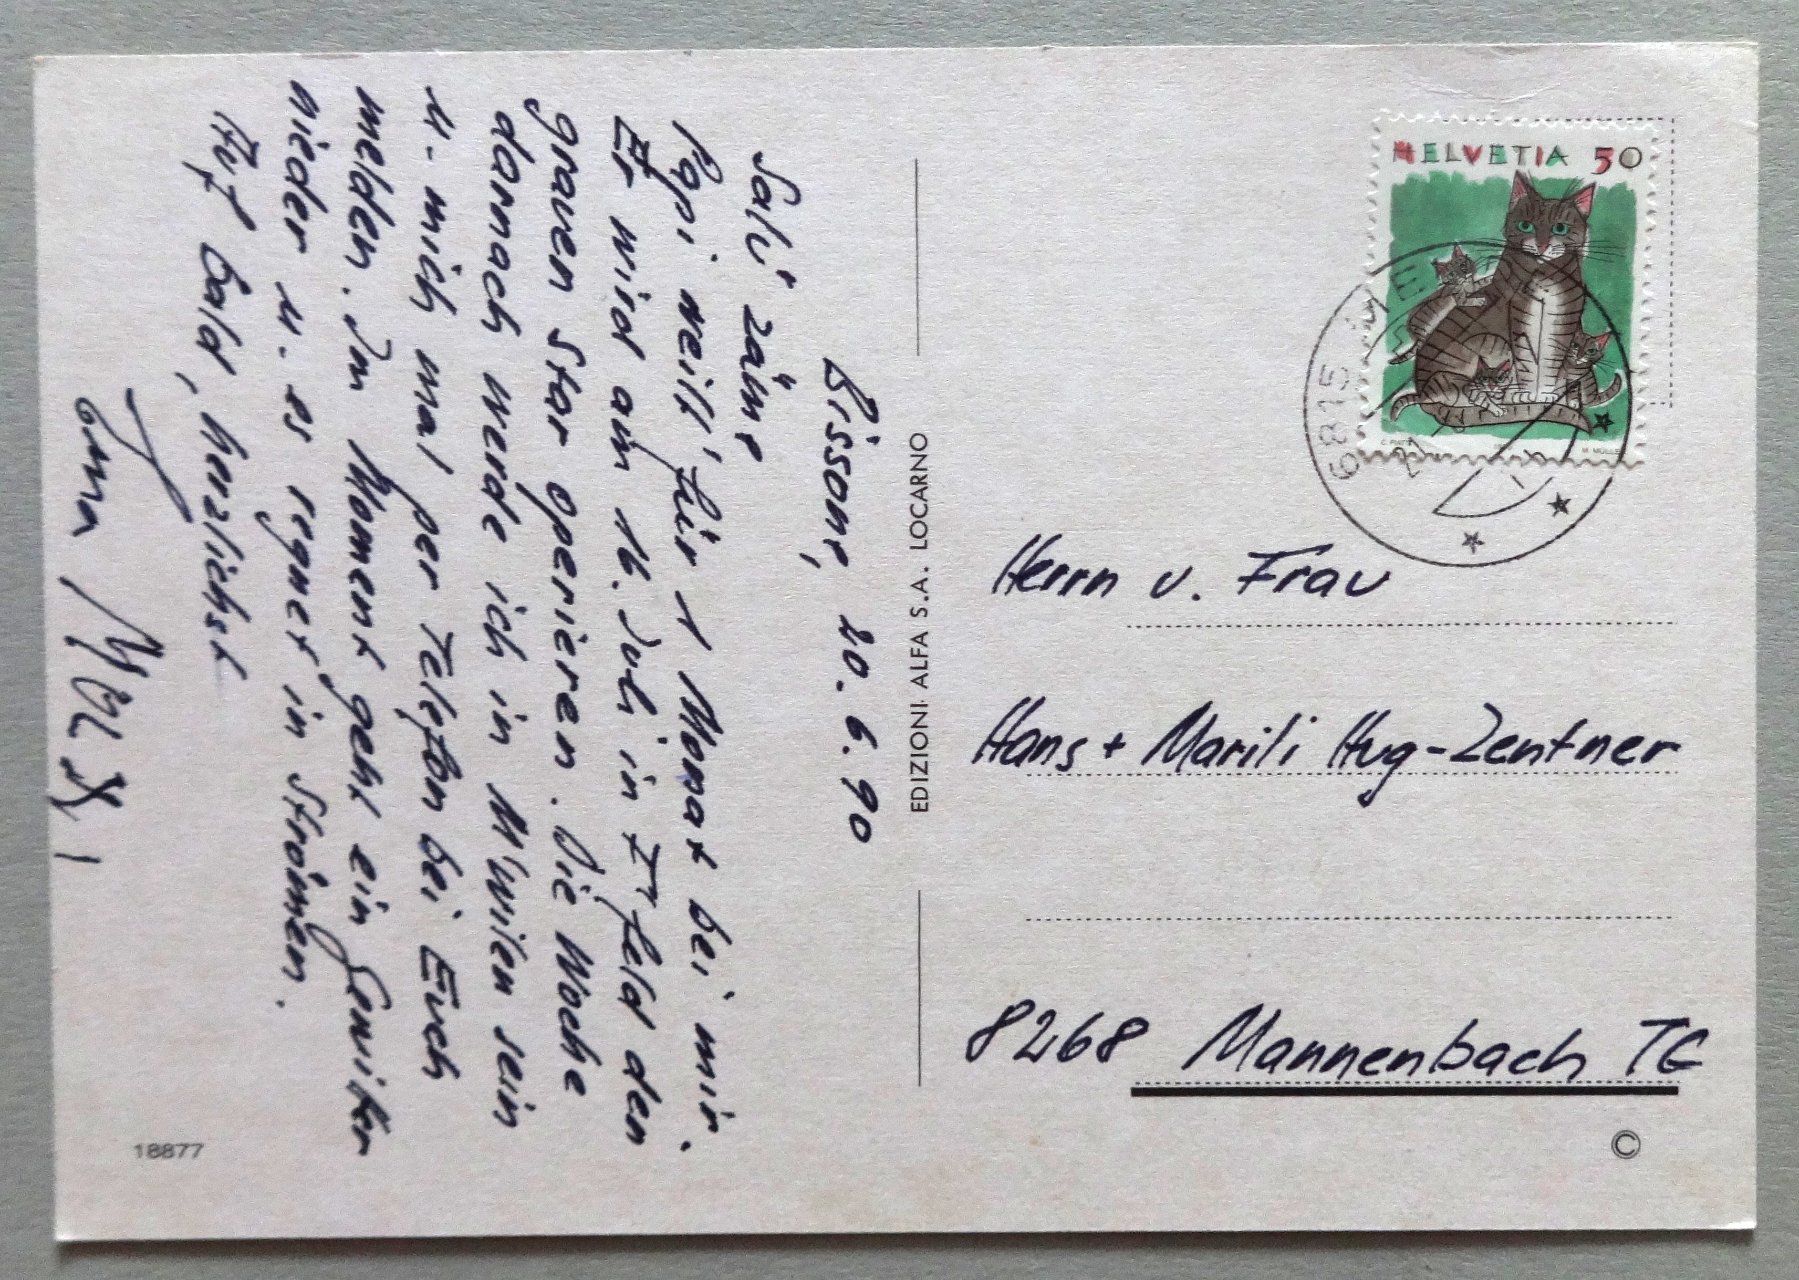 Bissone, 20.6.90
Sali zäme
Papi weilt für 1 Monat bei mir.
Er wird am 16. Juli in F'feld den
grauen Star operieren. Die Woche
darnach werde ich in M'wilen sein
u. mich mal per Telefon bei Euch
melden. Im Moment geht ein Gewitter
nieder u. es regnet in Strömen.
Auf bald, herzlichst
EDIZIONI ALFA S.A. LOCARNO
18877
HELVETIA 50
6815
Herrn u. Frau
Hans + Marili Hug-Zentner
8268 Mannenbach TG
©